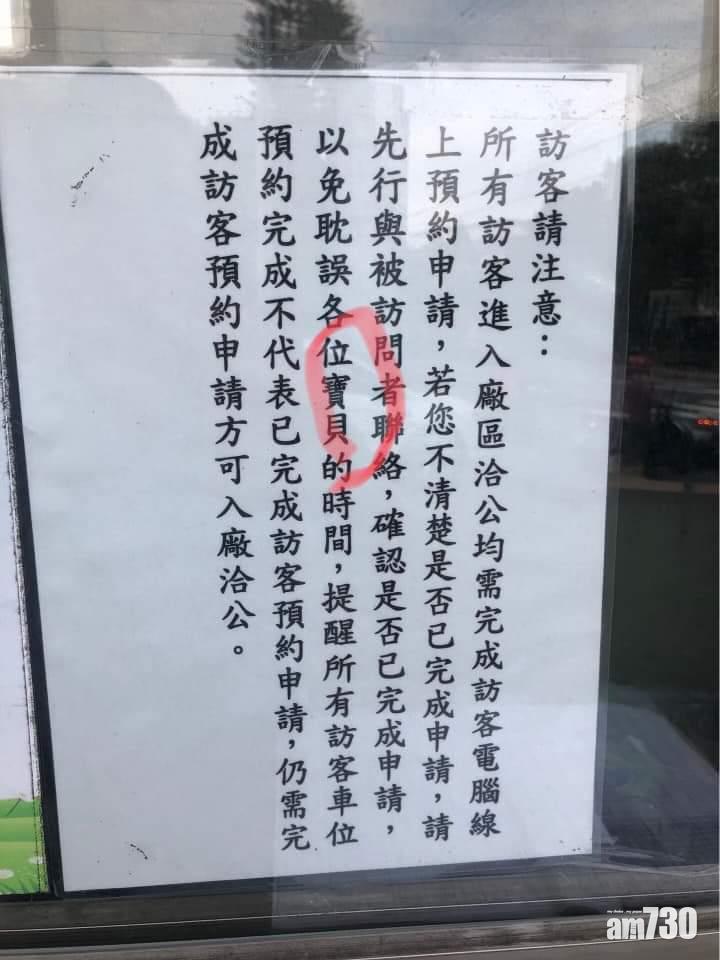 訪客請注意：
所有訪客進入廠區洽公均需完成訪客電腦線
上預約申請，若您不清楚是否已完成申請，請
先行與被訪問者聯絡，確認是否已完成申請，
以免耽誤各位寶貝的時間，提醒所有訪客車位
預約完成不代表已完成訪客預約申請，仍需完
成訪客預約申請方可入廠洽公。
am730